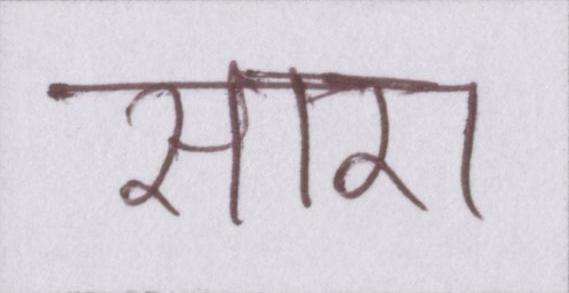 सारा